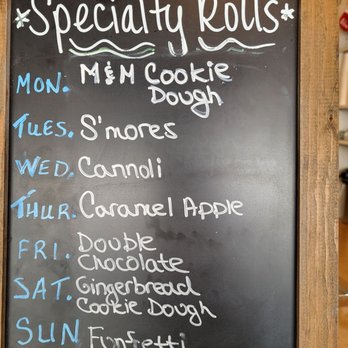 *Specialty Rolls*
MON. M&M Cookie
Dough
TUES. S'mores
WED. Cannoli
THUR. Caramel Apple
FRI. Double
Chocolate
SAT. Gingerbread
Cookie Dough
SUN Funfetti